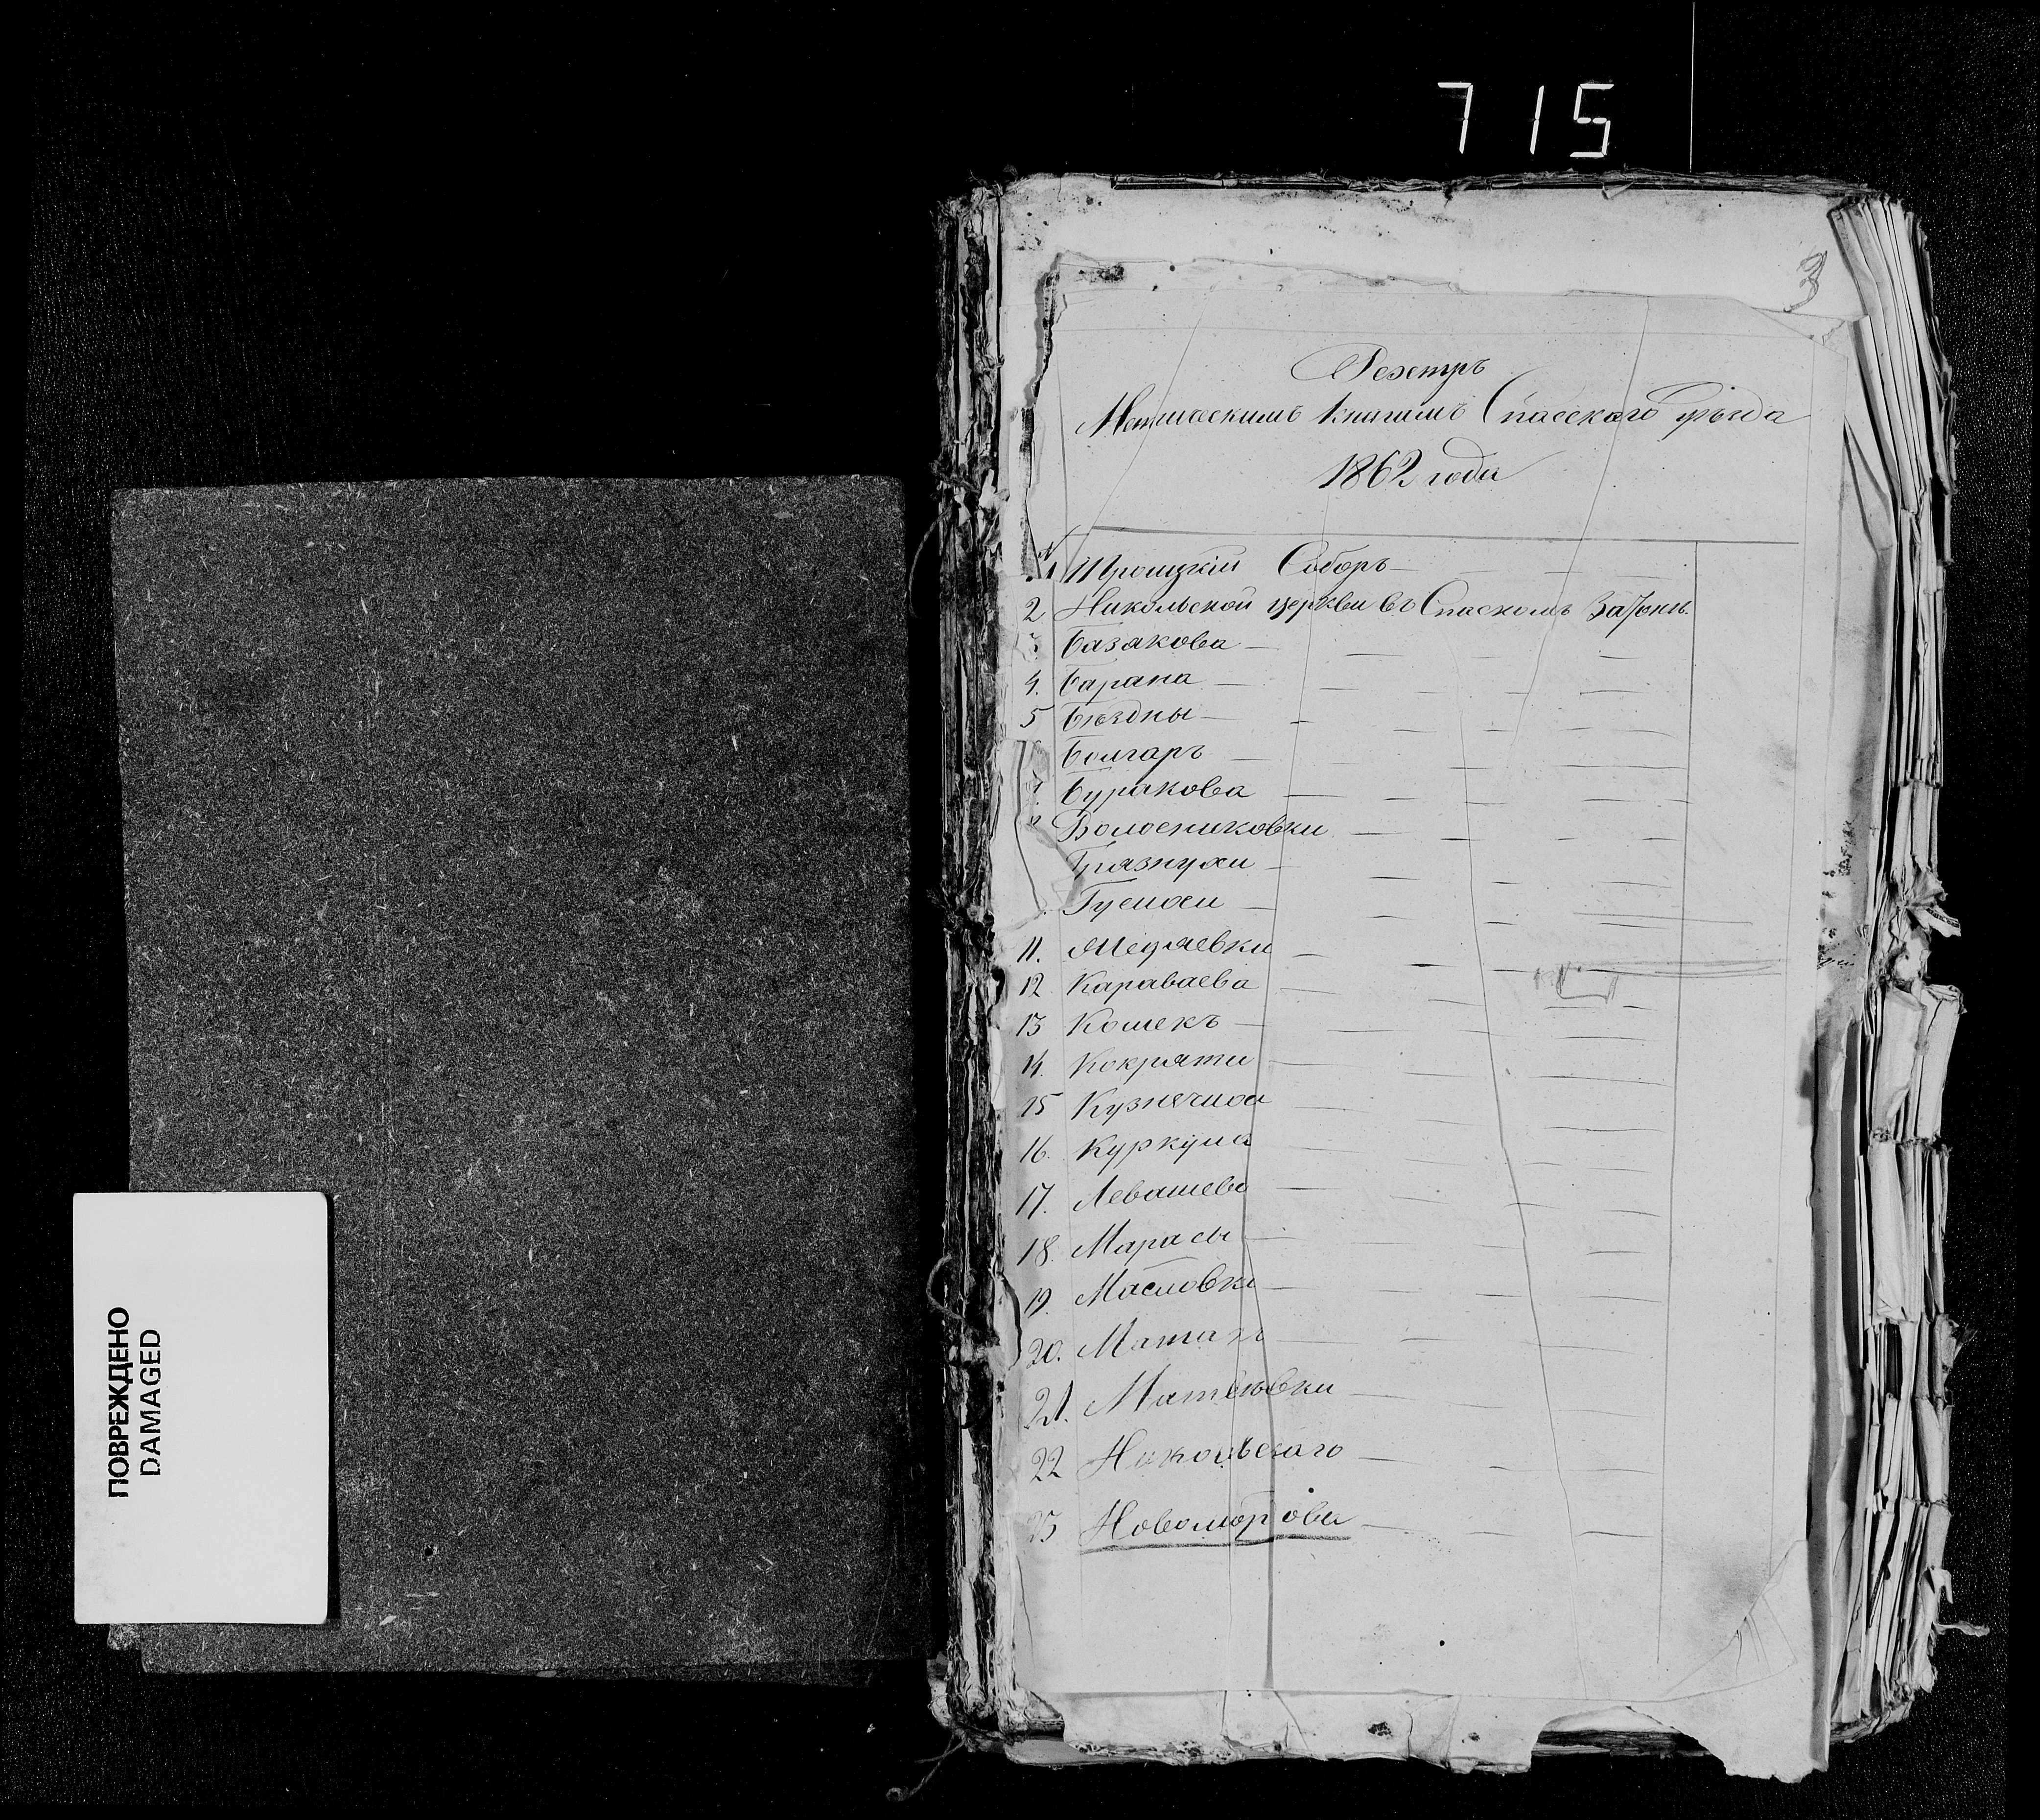 715
3
Реэстръ
Метрическимъ книгамъ Спасскаго уѣзда
1862 года
№ 1 Троицкій Соборъ
2 Никольской церкви въ Спаскомъ Затонѣ.
Базякова
4. Барана
5 Бездны
Болгаръ
7. Буракова
Волосниковки
Грязнухи
Гусихи
11. Жедяевки
12 Караваева
13 Кошекъ
14. Кокряти
15 Кузнечихи
16. Куркуля
17. Левашева
18. Марасы
19. Масловки
20. Матакъ
21. Матвѣевки
22 Никольскаго
23 Новомордова
ПОВРЕЖДЕНО
DAMAGED